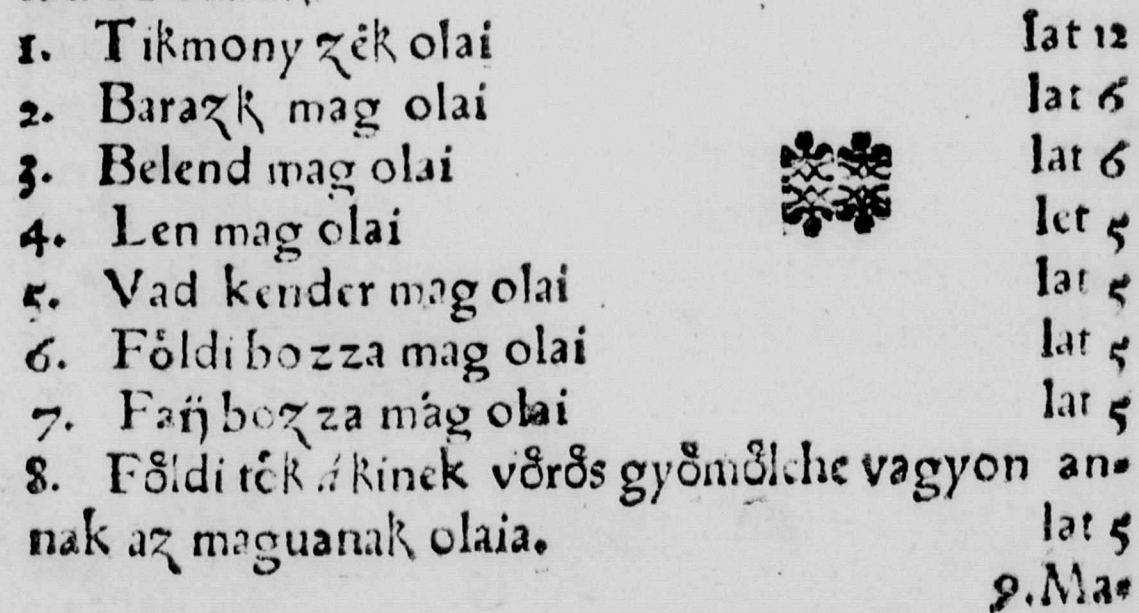 1. Tikmony zék olai lat 12
2. Barazk mag olai lat 6
3. Belend mag olai lat 6
4. Len mag olai let 5
5. Vad kender mag olai lat 5
6. Fo̊ldi bozza mag olai lat 5
7. Fan̈ bozza mág olai lat 5
8. Fo̊ldi ték á kinek vo̊ro̊s gyo̊mo̊lche vagyon an-
nak az maguanak olaia. lat 5
9. Ma-